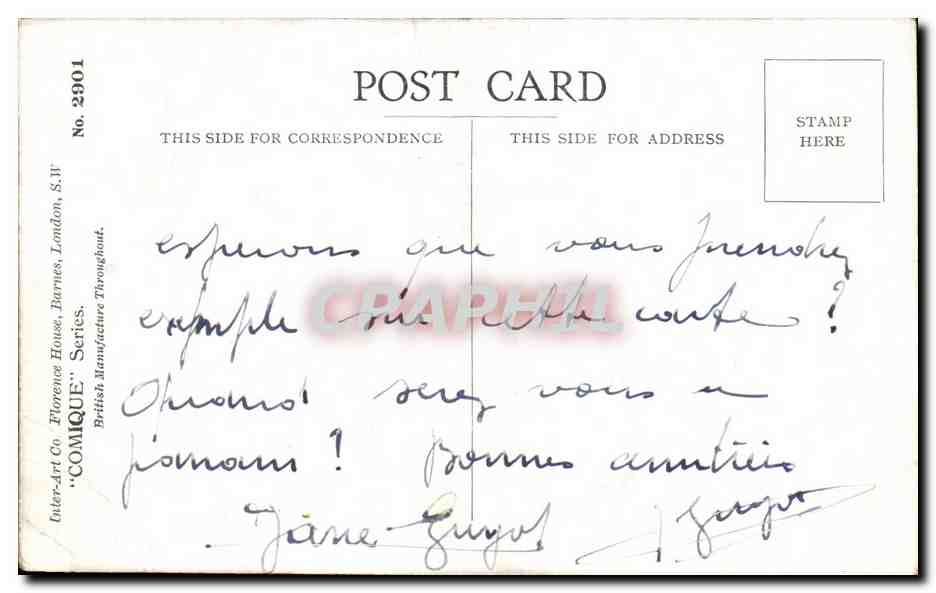 POST CARD
THIS SIDE FOR CORRESPONDENCE
THIS SIDE FOR ADDRESS
STAMP
HERE
No. 2901
Inter-Art Co. Florence House, Barnes, London, S.W
"COMIQUE" Series.
British Manufacture Throughout.
CPAPHIL
esperons que vous prendrez
exemple sur cette carte ?
Quand serez vous
! Bonnes amitiés
Jane Guyot J Guyot